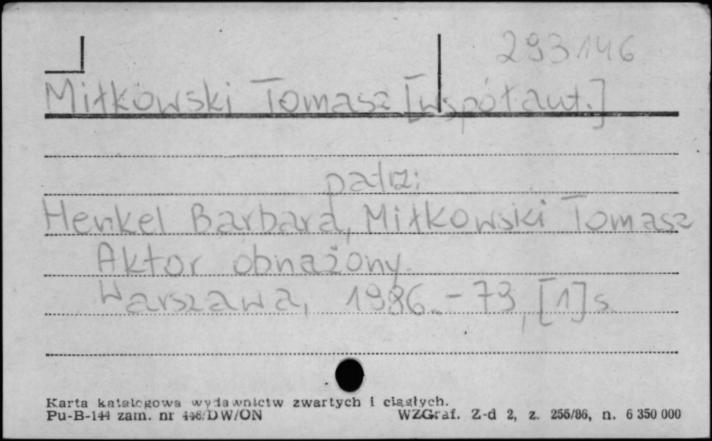 293146
Miłkowski Tomasz [współaut.]
patrz:
Henkel Barbara, Miłkowski Tomasz
Aktor obnażony.
Warszawa, 1986. - 73, [1] s.
Karta katalogowa wydawnictw zwartych i ciągłych.
Pu-B-144 zam. nr 446/DW/ON WZGraf. Z-d 2, z. 256/86, n. 6 350 000